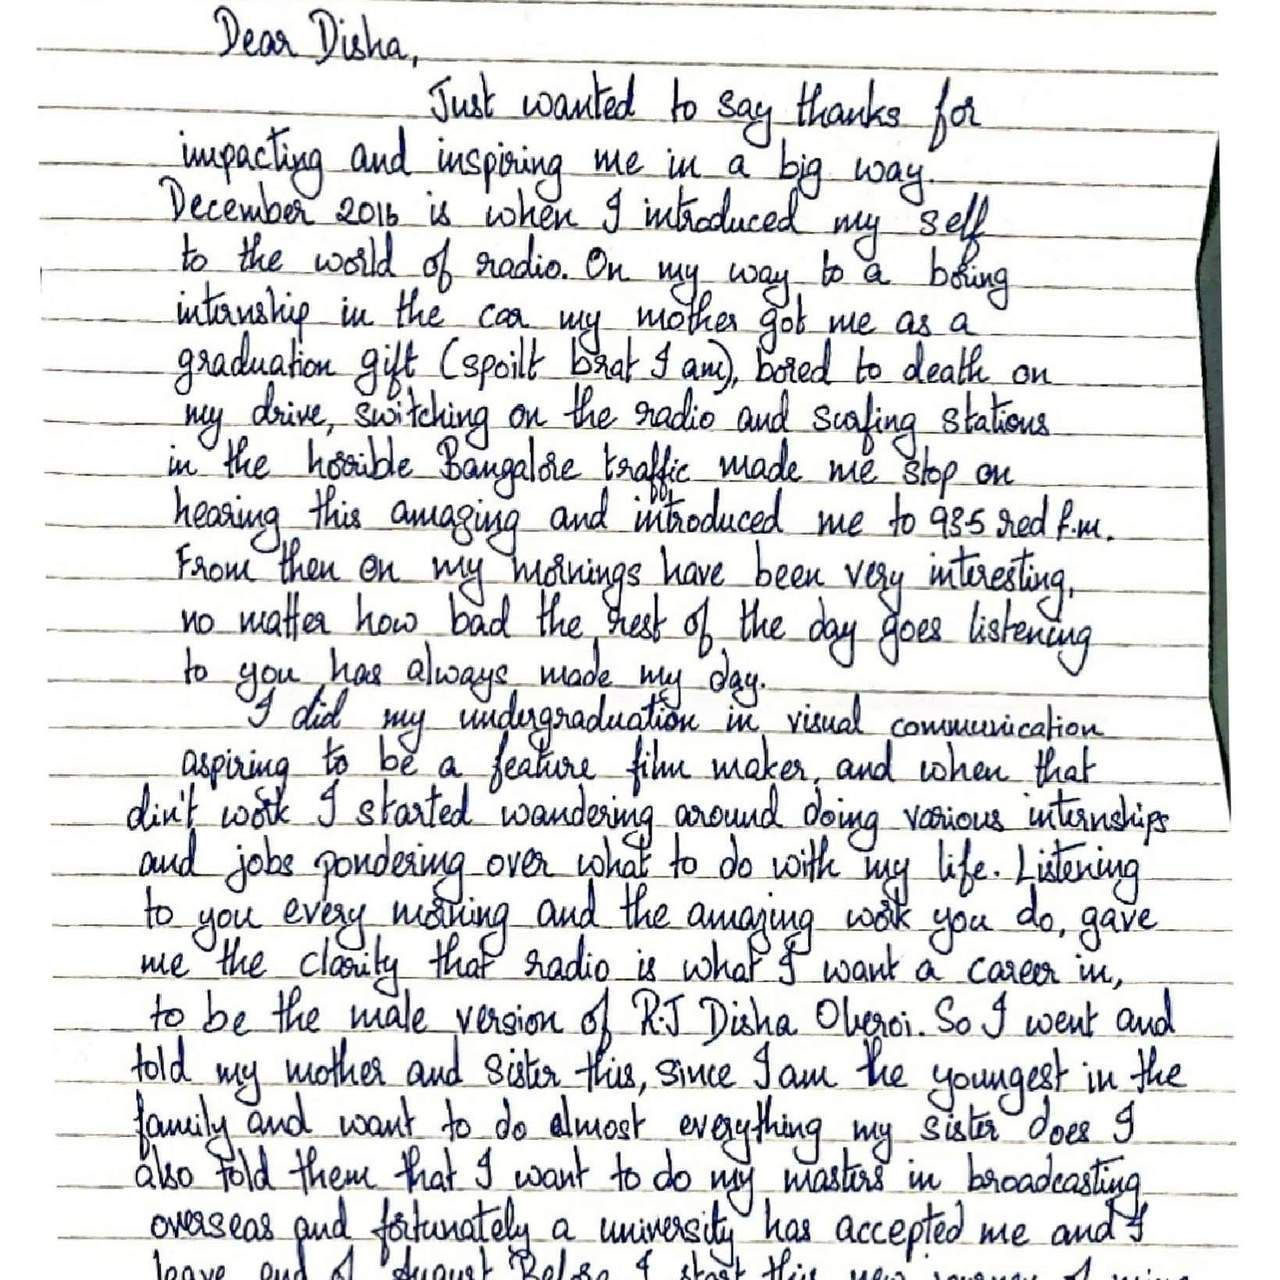 Dear Disha,
Just wanted to say thanks for
impacting and inspiring me in a big way.
December 2016 is when I introduced my self
to the world of radio. On my way to a boring
internship in the car my mother got me as a
graduation gift (spoilt brat I am), bored to death on
my drive, switching on the radio and surfing stations
in the horrible Bangalore traffic made me stop on
hearing this amazing and introduced me to 93.5 red f.m.
From then on my mornings have been very interesting,
no matter how bad the rest of the day goes listening
to you has always made my day.
I did my undergraduation in visual communication
aspiring to be a feature film maker, and when that
din't work I started wandering around doing various internships
and jobs pondering over what to do with my life. Listening
to you every morning and the amazing work you do, gave
me the clarity that radio is what I want a career in,
to be the male version of R.J Disha Oberoi. So I went and
told my mother and sister this, since I am the youngest in the
family and want to do almost everything my sister does I
also told them that I want to do my masters in broadcasting
overseas and fortunately a university has accepted me and I
leave end of August Before I start this new journey of mine